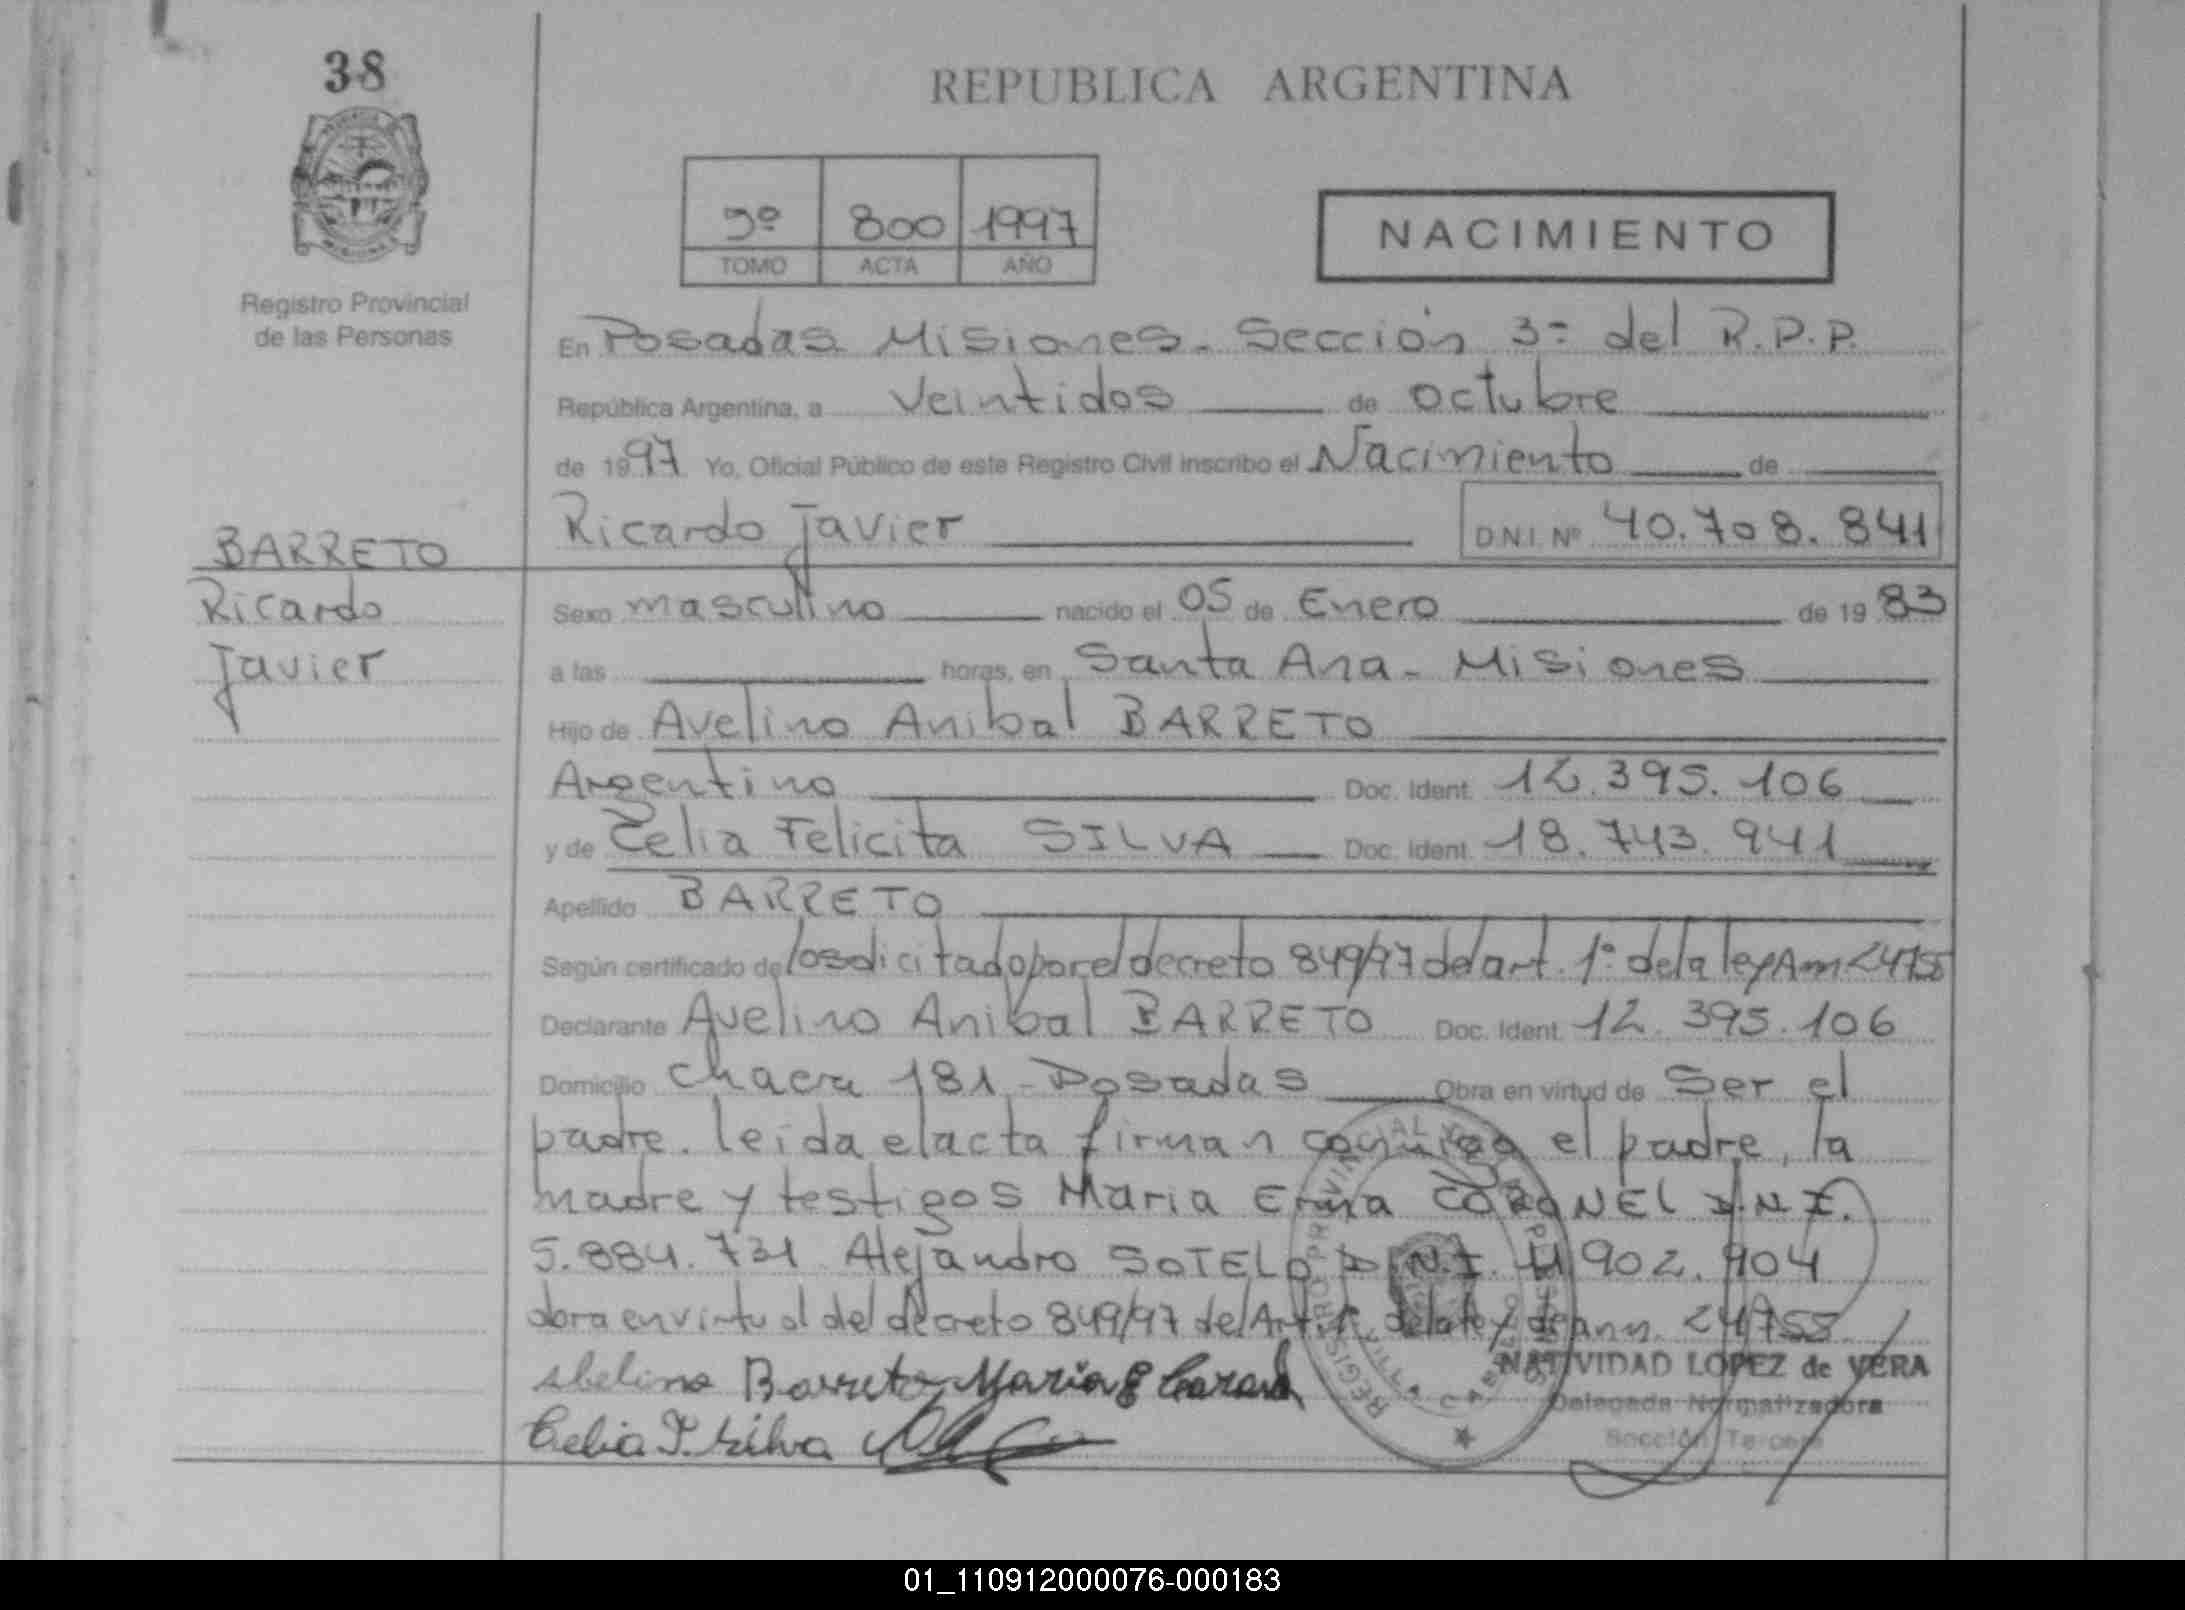 38
REPUBLICA ARGENTINA
9º 800 1997
TOMO ACTA AÑO
NACIMIENTO
Registro Provincial
de las Personas
En Posadas Misiones. Sección 3ª del R.P.P.
República Argentina, a veintidos de octubre
de 1997 Yo, Oficial Público de este Registro Civil inscribo el Nacimiento de
Ricardo Javier D.N.I. Nº 40.708.841
BARRETO
Ricardo
Javier
Sexo masculino nacido el 05 de Enero de 1983
a las horas, en Santa Ana - Misiones
Hijo de Avelino Anibal BARRETO
Argentino Doc. Ident. 12.395.106
y de Celia Felicita SILVA Doc. Ident. 18.743.941
Apellido BARRETO
Según certificado de lo solicitado por el decreto 849/97 del art. 1º de la ley Am 24755
Declarante Avelino Anibal BARRETO Doc. Ident. 12.395.106
Domicilio chacra 181 - Posadas Obra en virtud de Ser el
padre. leida el acta firman conmigo el padre, la
madre y testigos Maria Erma CORONEL D.N.I.
5.884.731 Alejandro SOTELO D.N.I. 11.902.904
obra en virtud del decreto 849/97 del Art. 1º de la ley de ann. 24755
Abelino Barreto Maria E
Celia F. Silva
REGISTRO PROVINCIAL
NATIVIDAD LOPEZ de VERA
Delegada Normatizadora
Sección Tercera
01_110912000076-000183